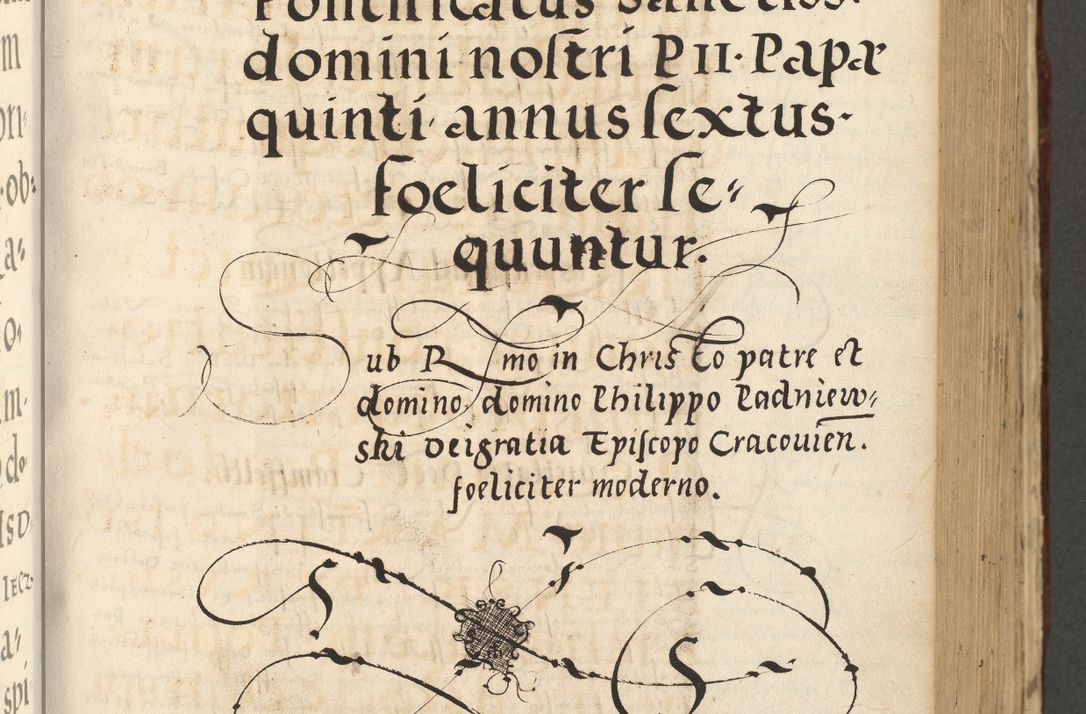 Pontificatus Sanctiss.
domini noſtri PII. Papæ
quinti annus ſextus.
foeliciter ſe⸗
quuntur.
Sub Rmo in Christo patre et
domino, domino Philippo Padniew⸗
ski Deigratia Epiſcopo Cracouien.
foeliciter moderno.